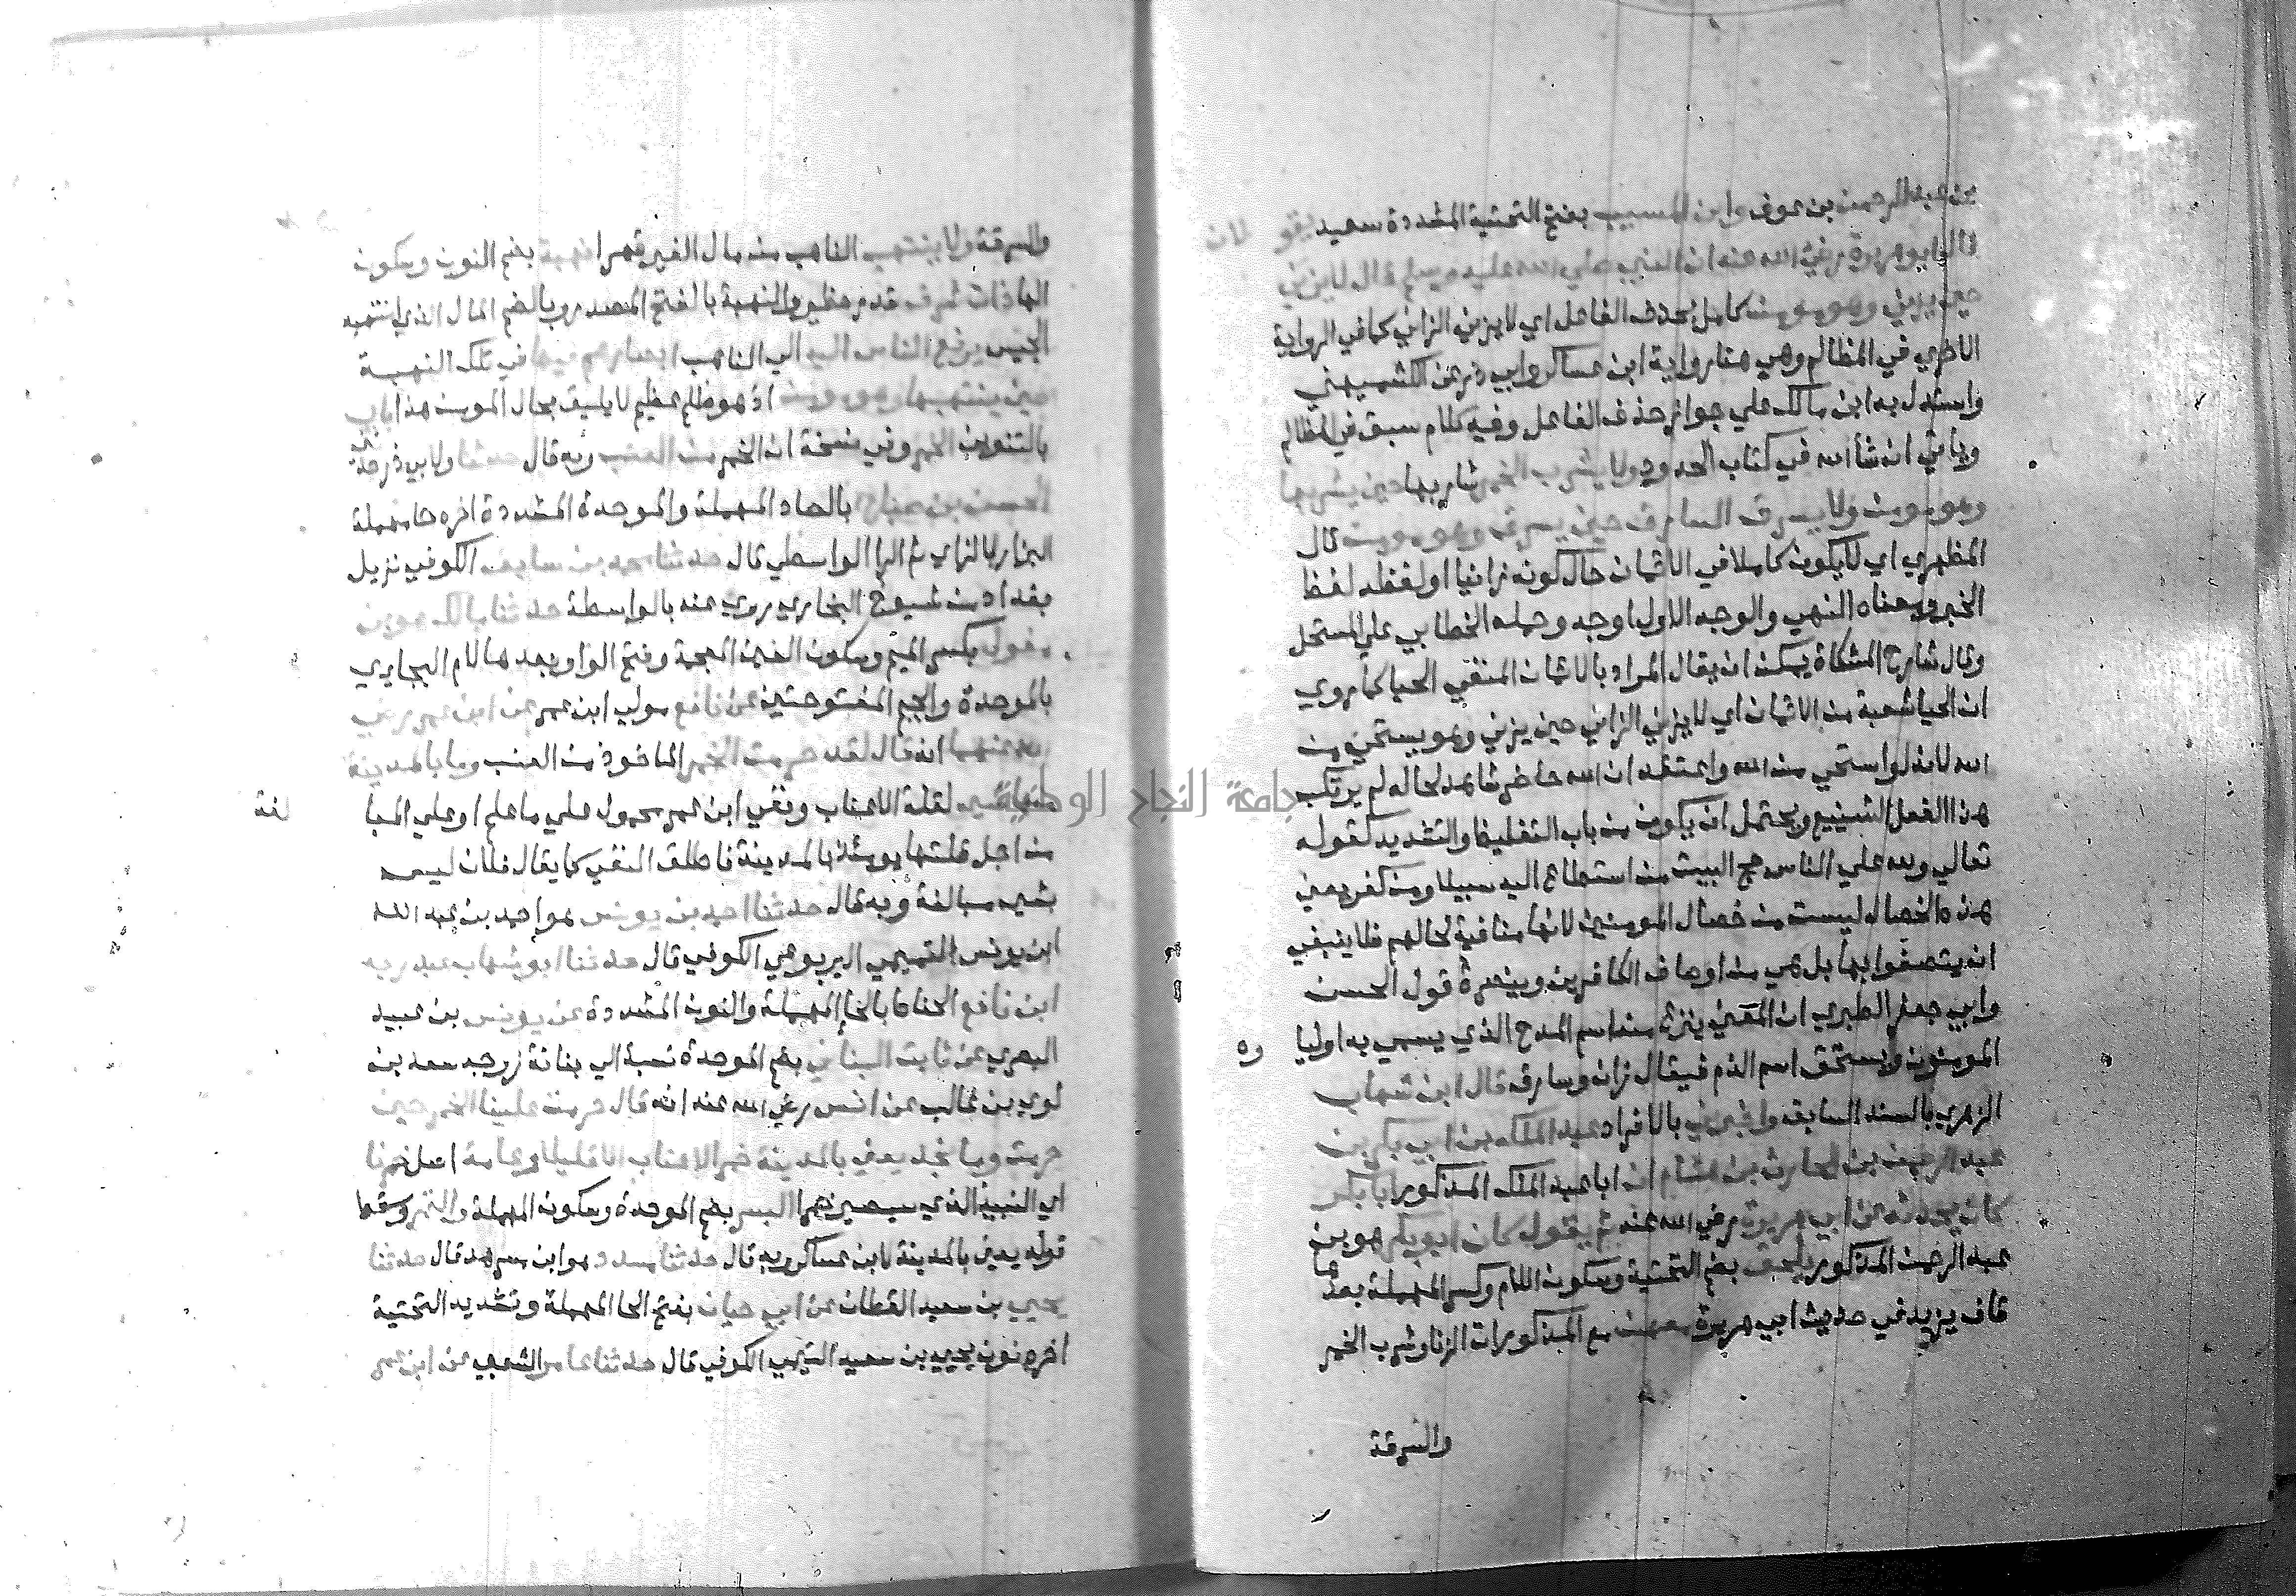 بن عبد الرحمن بن عوف وابن المسيب بفتح التحتية المشددة سعيد يقولان
قال ابو هريرة رضي الله عنه ان النبي صلي الله عليه وسلم قال لا يزني
حين يزني وهو مومن كامل بحذف الفاعل اي لا يزني الزاني كما في الرواية
الاخري في المظالم وهي هنا رواية ابن عساكر وابي ذر عن الكشميهني
واستدل به ابن مالك علي جواز حذف الفاعل وفيه كلام سبق في المظالم
وياتي ان شا الله في كتاب الحدود ولا يشرب الخمر شاربها حين يشربها
وهو مومن ولا يسرق السارق حين يسرق وهو مومن قال
المظهري اي لا يكون كاملا في الايمان حال كونه زانيا او لفظه لفظ
الخبر ومعناه النهي والوجه الاول اوجه وحمله الخطابي علي المستحل
وقال شارح المشكاة يمكن ان يقال المراد بالايمان المنفي الحيا كما روي
ان الحيا شعبة من الايمان اي لا يزني الزاني حين يزني وهو يستحي من
الله لانه لو استحي من الله واعتقد ان الله حاضر شاهد لحاله لم يرتكب
هذا الفعل الشنيع ويحتمل ان يكون من باب التغليظ والتشديد كقوله
تعالي ولله علي الناس حج البيت من استطاع اليه سبيلا ومن كفر يعني
هذه الخصال ليست من خصال المومنين لانها منافية لحالهم فلا ينبغي
ان يتصفوا بها بل هي من اوصاف الكافرين وينصره قول الحسن
وابي جعفر الطبري ان المعني ينزع منه اسم المدح الذي يسمي به اولياوه
المومنون ويستحق اسم الذم فيقال زان وسارق قال ابن شهاب
الزهري بالسند السابق واخبرني بالافراد عبد الملك بن ابي بكر بن
عبد الرحمن بن الحارث بن هشام ان ابا عبد الملك المذكور ابا بكر
كان يحدثه عن ابي هريرة رضي الله عنه ثم يقول كان ابو بكر هو بن
عبد الرحمن المذكور يلحق بضم التحتية وسكون اللام وكسر المهملة بعدها
قاف يزيد في حديث ابي هريرة معهن مع المذكورات الزنا وشرب الخمر
والسرقة
والسرقة ولا ينتهب الناهب من مال الغير قهرا نهبة بضم النون وسكون
الها ذات شرف قدر خطير والنهبة بالفتح المصدر وبالضم المال الذي انتهبه
الجيش يرفع الناس اليه الي الناهب ابصارهم فيها في تلك النهبة
حين ينتهبها وهو مومن اذ هو ظلم عظيم لا يليق بحال المومن هذا باب
بالتنوين الخمر وفي نسخة ان الخمر من العنب وبه قال حدثنا ولابي ذر حدثني
الحسن بن صباح بالصاد المهملة والموحدة المشددة اخره حا مهملة
البزار بالزاي ثم الرا الواسطي قال حدثنا محمد بن سابق الكوفي نزيل
بغداد من شيوخ البخاري روي عنه بالواسطة حدثنا مالك هو بن
مغول بكسر الميم وسكون الغين المعجمة وفتح الواو بعدها لام البجلي
بالموحدة والجيم المفتوحتين عن نافع مولي ابن عمر عن ابن عمر رضي
الله عنهما انه قال لقد حرمت الخمر الماخوذ من العنب وما بالمدينة
منها شي لقلة الاعناب ونفي ابن عمر محمول علي ما علم او علي المبالغة
من اجل قلتها يومئذ بالمدينة فاطلق النفي كما يقال فلان ليس
بشي مبالغة وبه قال حدثنا احمد بن يونس هو احمد بن عبد الله
ابن يونس التميمي اليربوعي الكوفي قال حدثنا ابو شهاب عبد ربه
ابن نافع الحناط بالحا المهملة والنون المشددة عن يونس بن عبيد
البصري عن ثابت البناني بضم الموحدة نسبة الي بنانة زوجه سعد بن
لوي بن غالب عن انس رضي الله عنه انه قال حرمت علينا الخمر حين
حرمت وما نجد يعني بالمدينة خمر الاعناب الا قليلا وعامة اصل خمرنا
اي النبيذ الذي سيصير خمرا البسر بضم الموحدة وسكون المهملة والتمر وسقط
قوله يعني بالمدينة لابن عساكر وبه قال حدثنا مسدد هو ابن مسرهد قال حدثنا
يحيي بن سعيد القطان عن ابي حيان بفتح الحا المهملة وتشديد التحتية
اخره نون يحيي بن سعيد التيمي الكوفي قال حدثنا عامر الشعبي عن ابن عمر
جامعة النجاح الوطنية